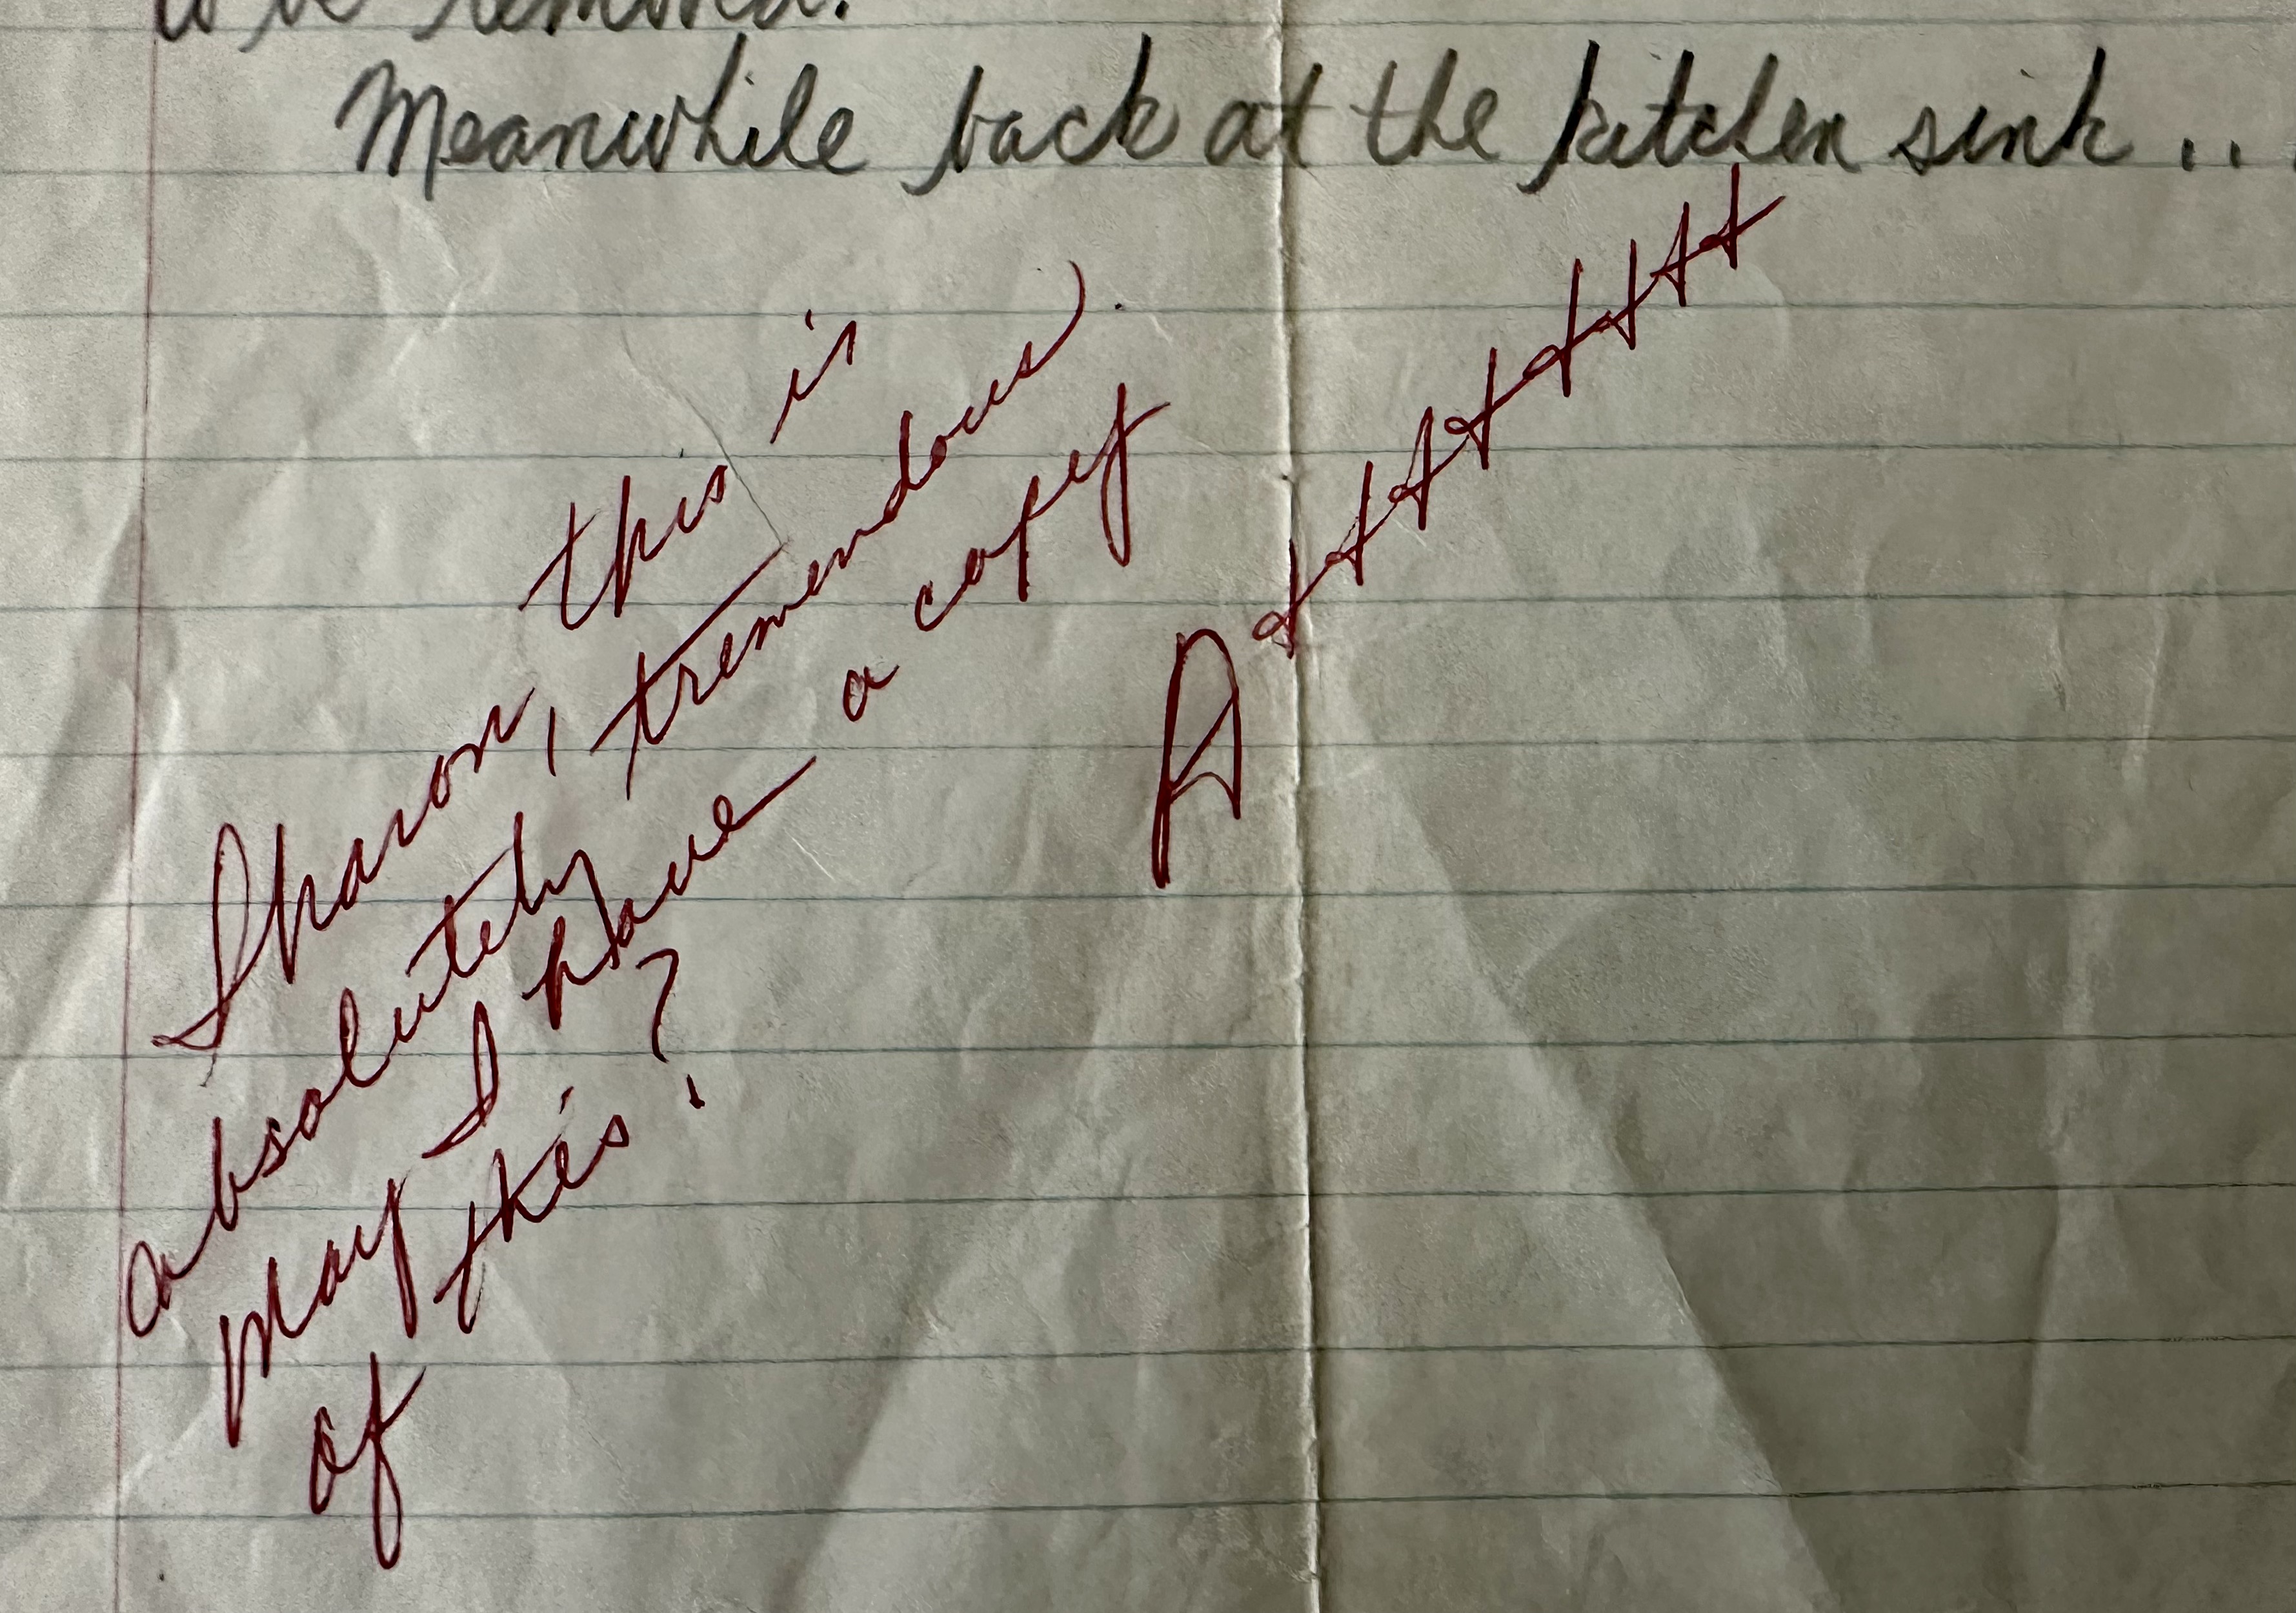 to be removed.
Meanwhile back at the kitchen sink ..
Sharon, this is
absolutely tremendous.
May I have a copy
of this?
A++++++++